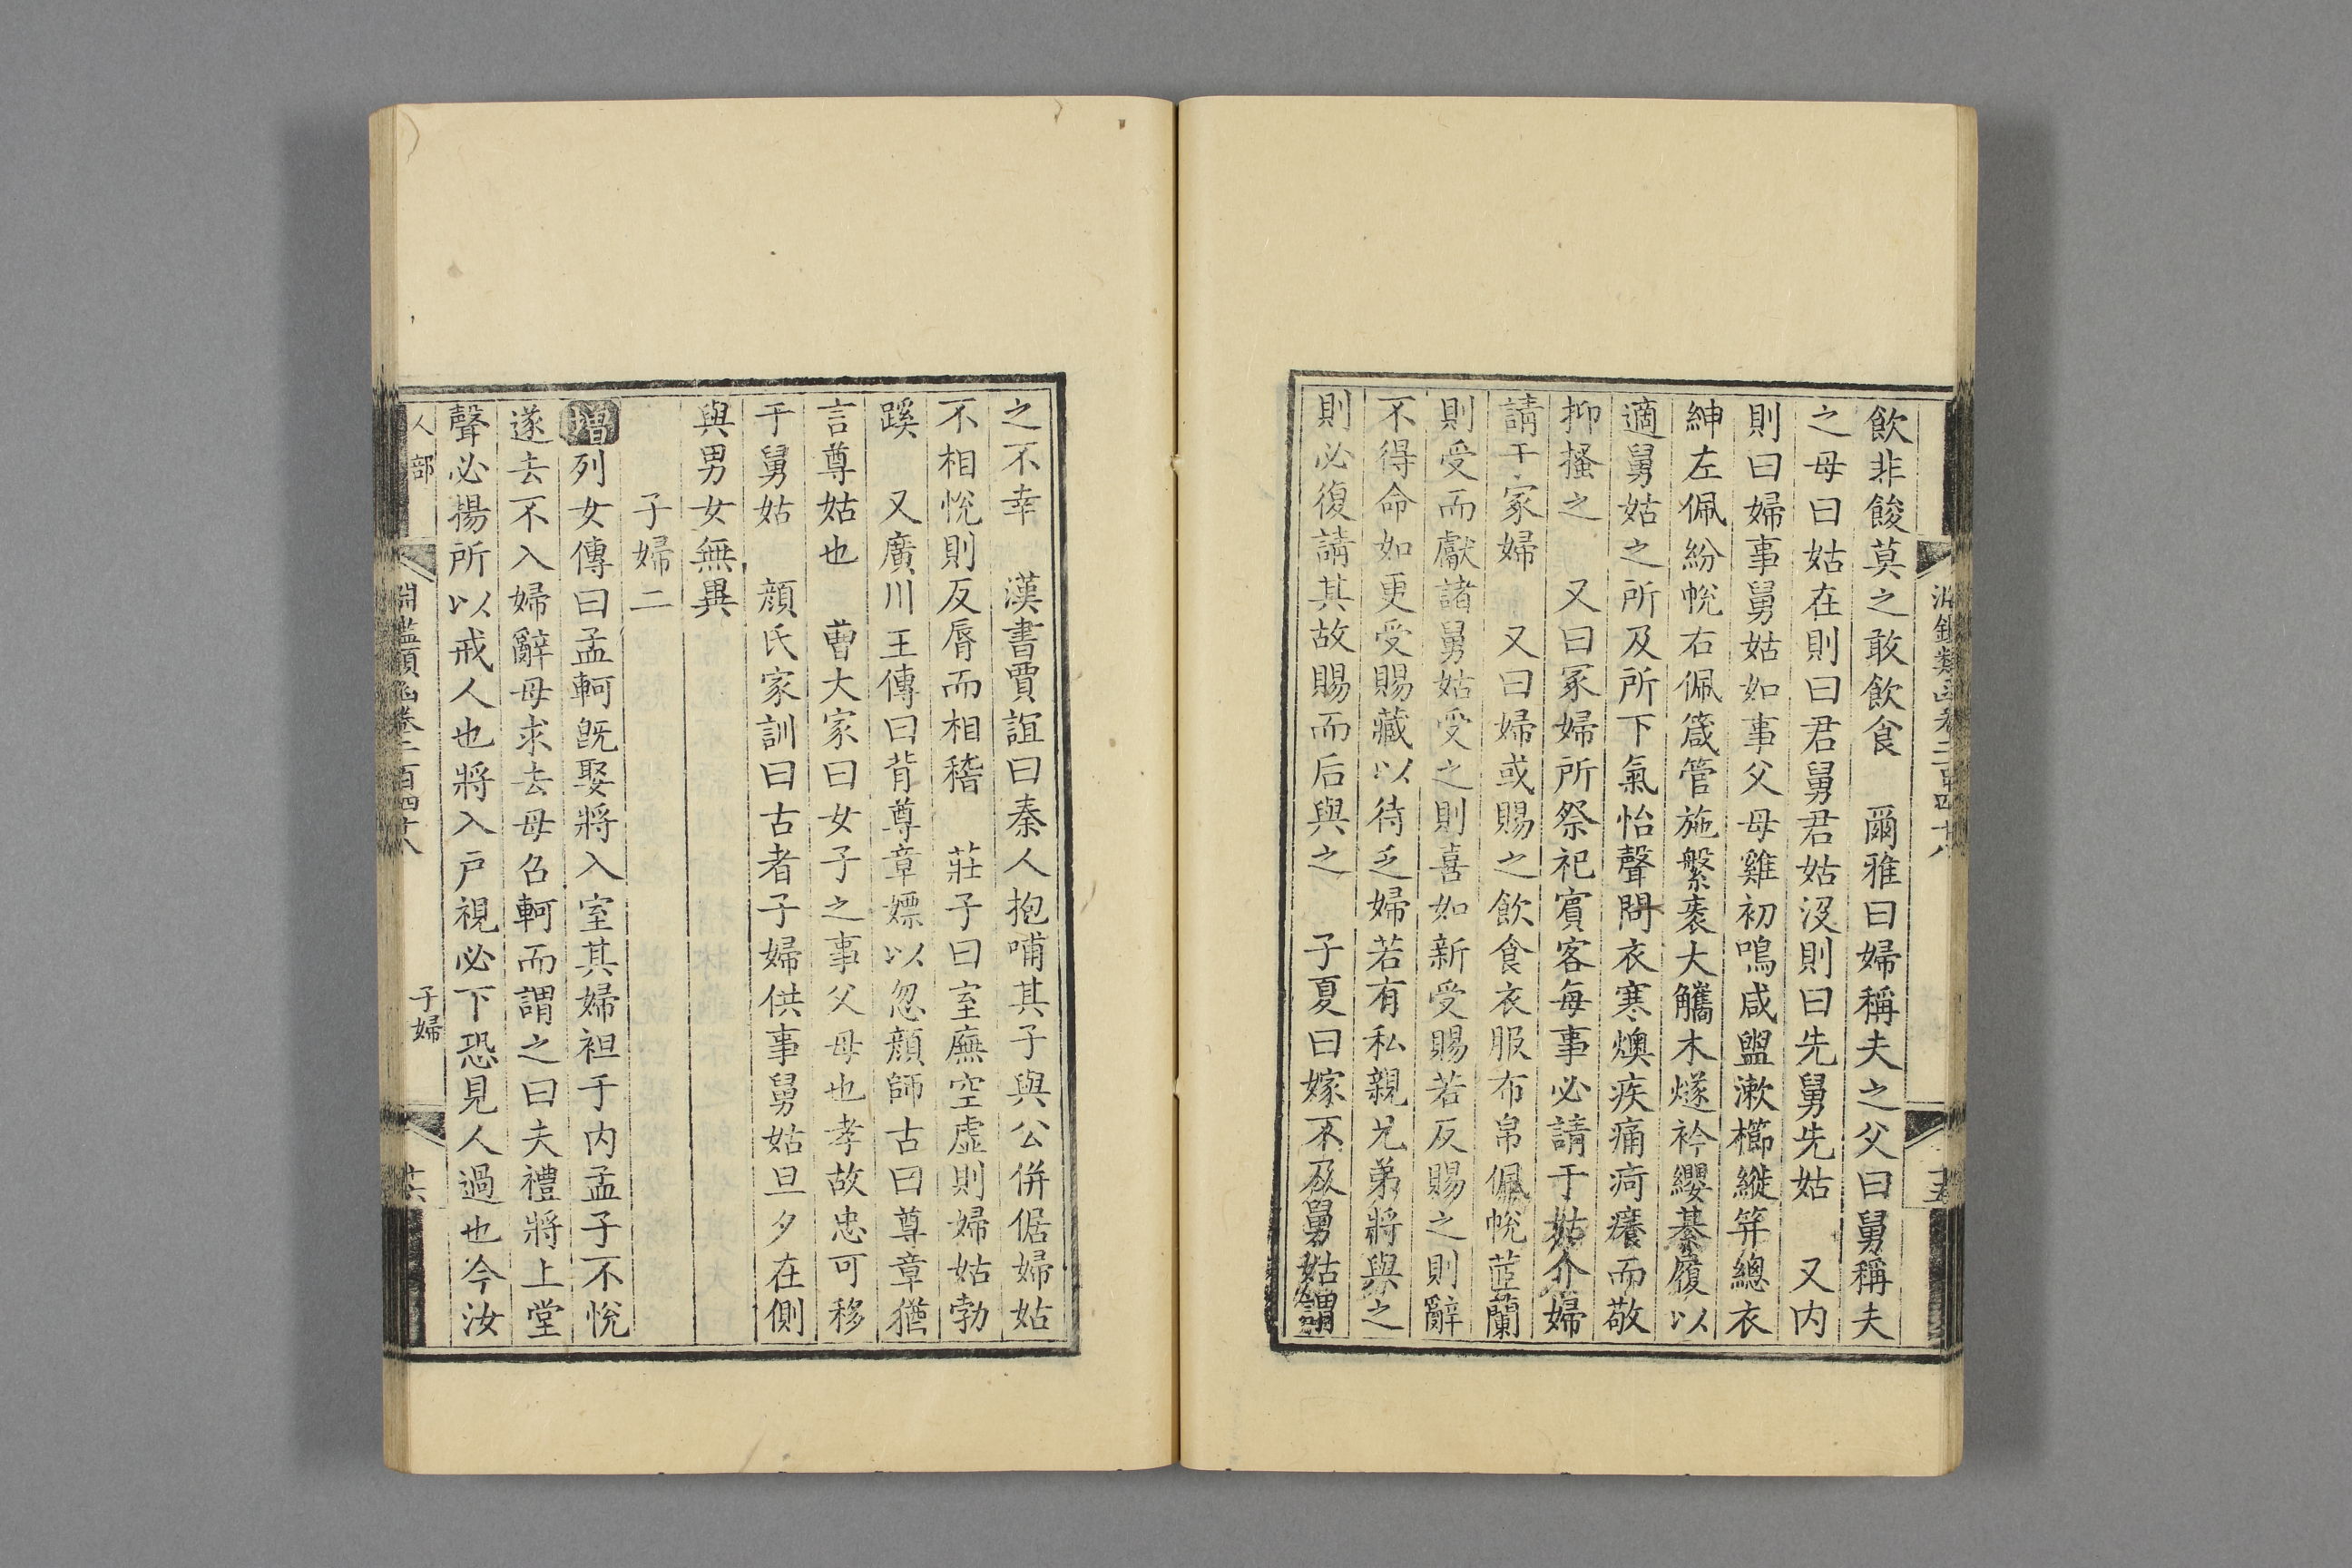 飲非餕莫之敢飲食　爾雅曰婦稱夫之父曰舅稱夫
之母曰姑在則曰君舅君姑沒則曰先舅先姑　又內
則曰婦事舅姑如事父母雞初鳴咸盥漱櫛縰笄總衣
紳左佩紛帨右佩箴管施縏袠大觿木燧衿纓綦履以
適舅姑之所及所下氣怡聲問衣寒燠疾痛疴癢而敬
抑搔之　又曰冢婦所祭祀賓客每事必請于姑介婦
請于冢婦　又曰婦或賜之飲食衣服布帛佩帨茝蘭
則受而獻諸舅姑受之則喜如新受賜若反賜之則辭
不得命如更受賜藏以待乏婦若有私親兄弟將與之
則必復請其故賜而后與之　子夏曰嫁不及舅姑謂
之不幸　漢書賈誼曰秦人抱哺其子與公併倨婦姑
不相悅則反脣而相稽　莊子曰室無空虛則婦姑勃
蹊　又廣川王傳曰背尊章嫖以忽顏師古曰尊章猶
言尊姑也　曹大家曰女子之事父母也孝故忠可移
于舅姑　顏氏家訓曰古者子婦供事舅姑旦夕在側
與男女無異
子婦二
增列女傳曰孟軻既娶將入室其婦袒于內孟子不悅
遂去不入婦辭母求去母召軻而謂之曰夫禮將上堂
聲必揚所以戒人也將入戶視必下恐見人過也今汝
人部　淵鑑類函卷二百四十八　子婦